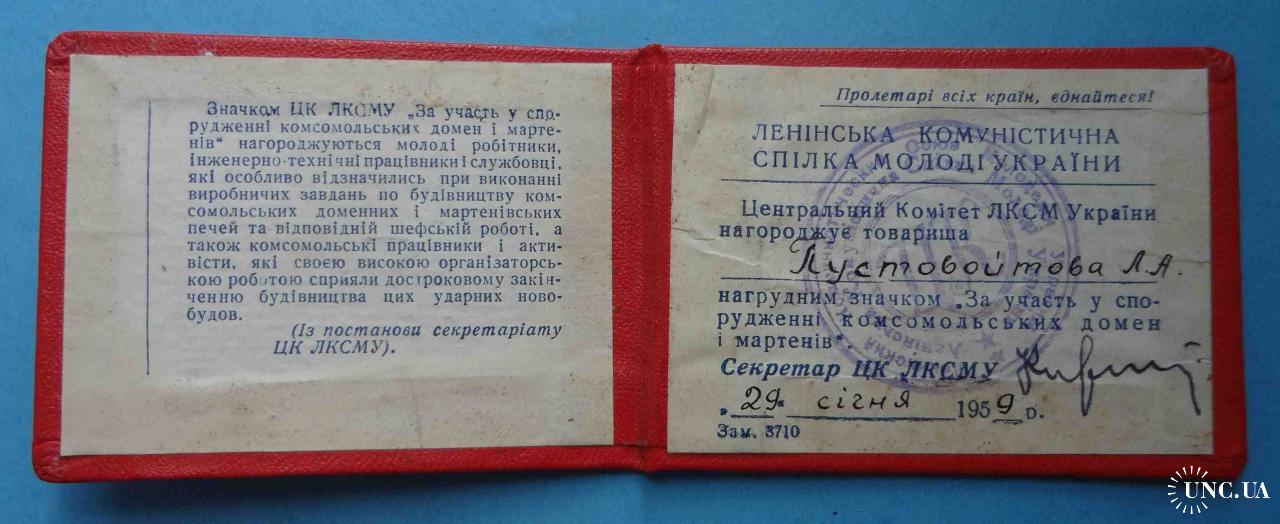 Значком ЦК ЛКСМУ „За участь у спо-
рудженні комсомольських домен і марте-
нів" нагороджуються молоді робітники,
інженерно-технічні працівники і службовці,
які особливо відзначились при виконанні
виробничих завдань по будівництву ком-
сомольських доменних і мартенівських
печей та відповідній шефській роботі, а
також комсомольські працівники і акти-
вісти, які своєю високою організаторсь-
кою роботою сприяли достроковому закін-
ченню будівництва цих ударних ново-
будов.
(Із постанови секретаріату
ЦК ЛКСМУ).
Пролетарі всіх країн, єднайтеся!
ЛЕНІНСЬКА КОМУНІСТИЧНА
СПІЛКА МОЛОДІ УКРАЇНИ
Центральний Комітет ЛКСМ України
нагороджує товариша
Пустовойтова Л.А.
нагрудним значком „За участь у спо-
рудженні комсомольських домен
і мартенів".
Секретар ЦК ЛКСМУ
„29" січня 1959 р.
Зам. 3710
UNC.UA